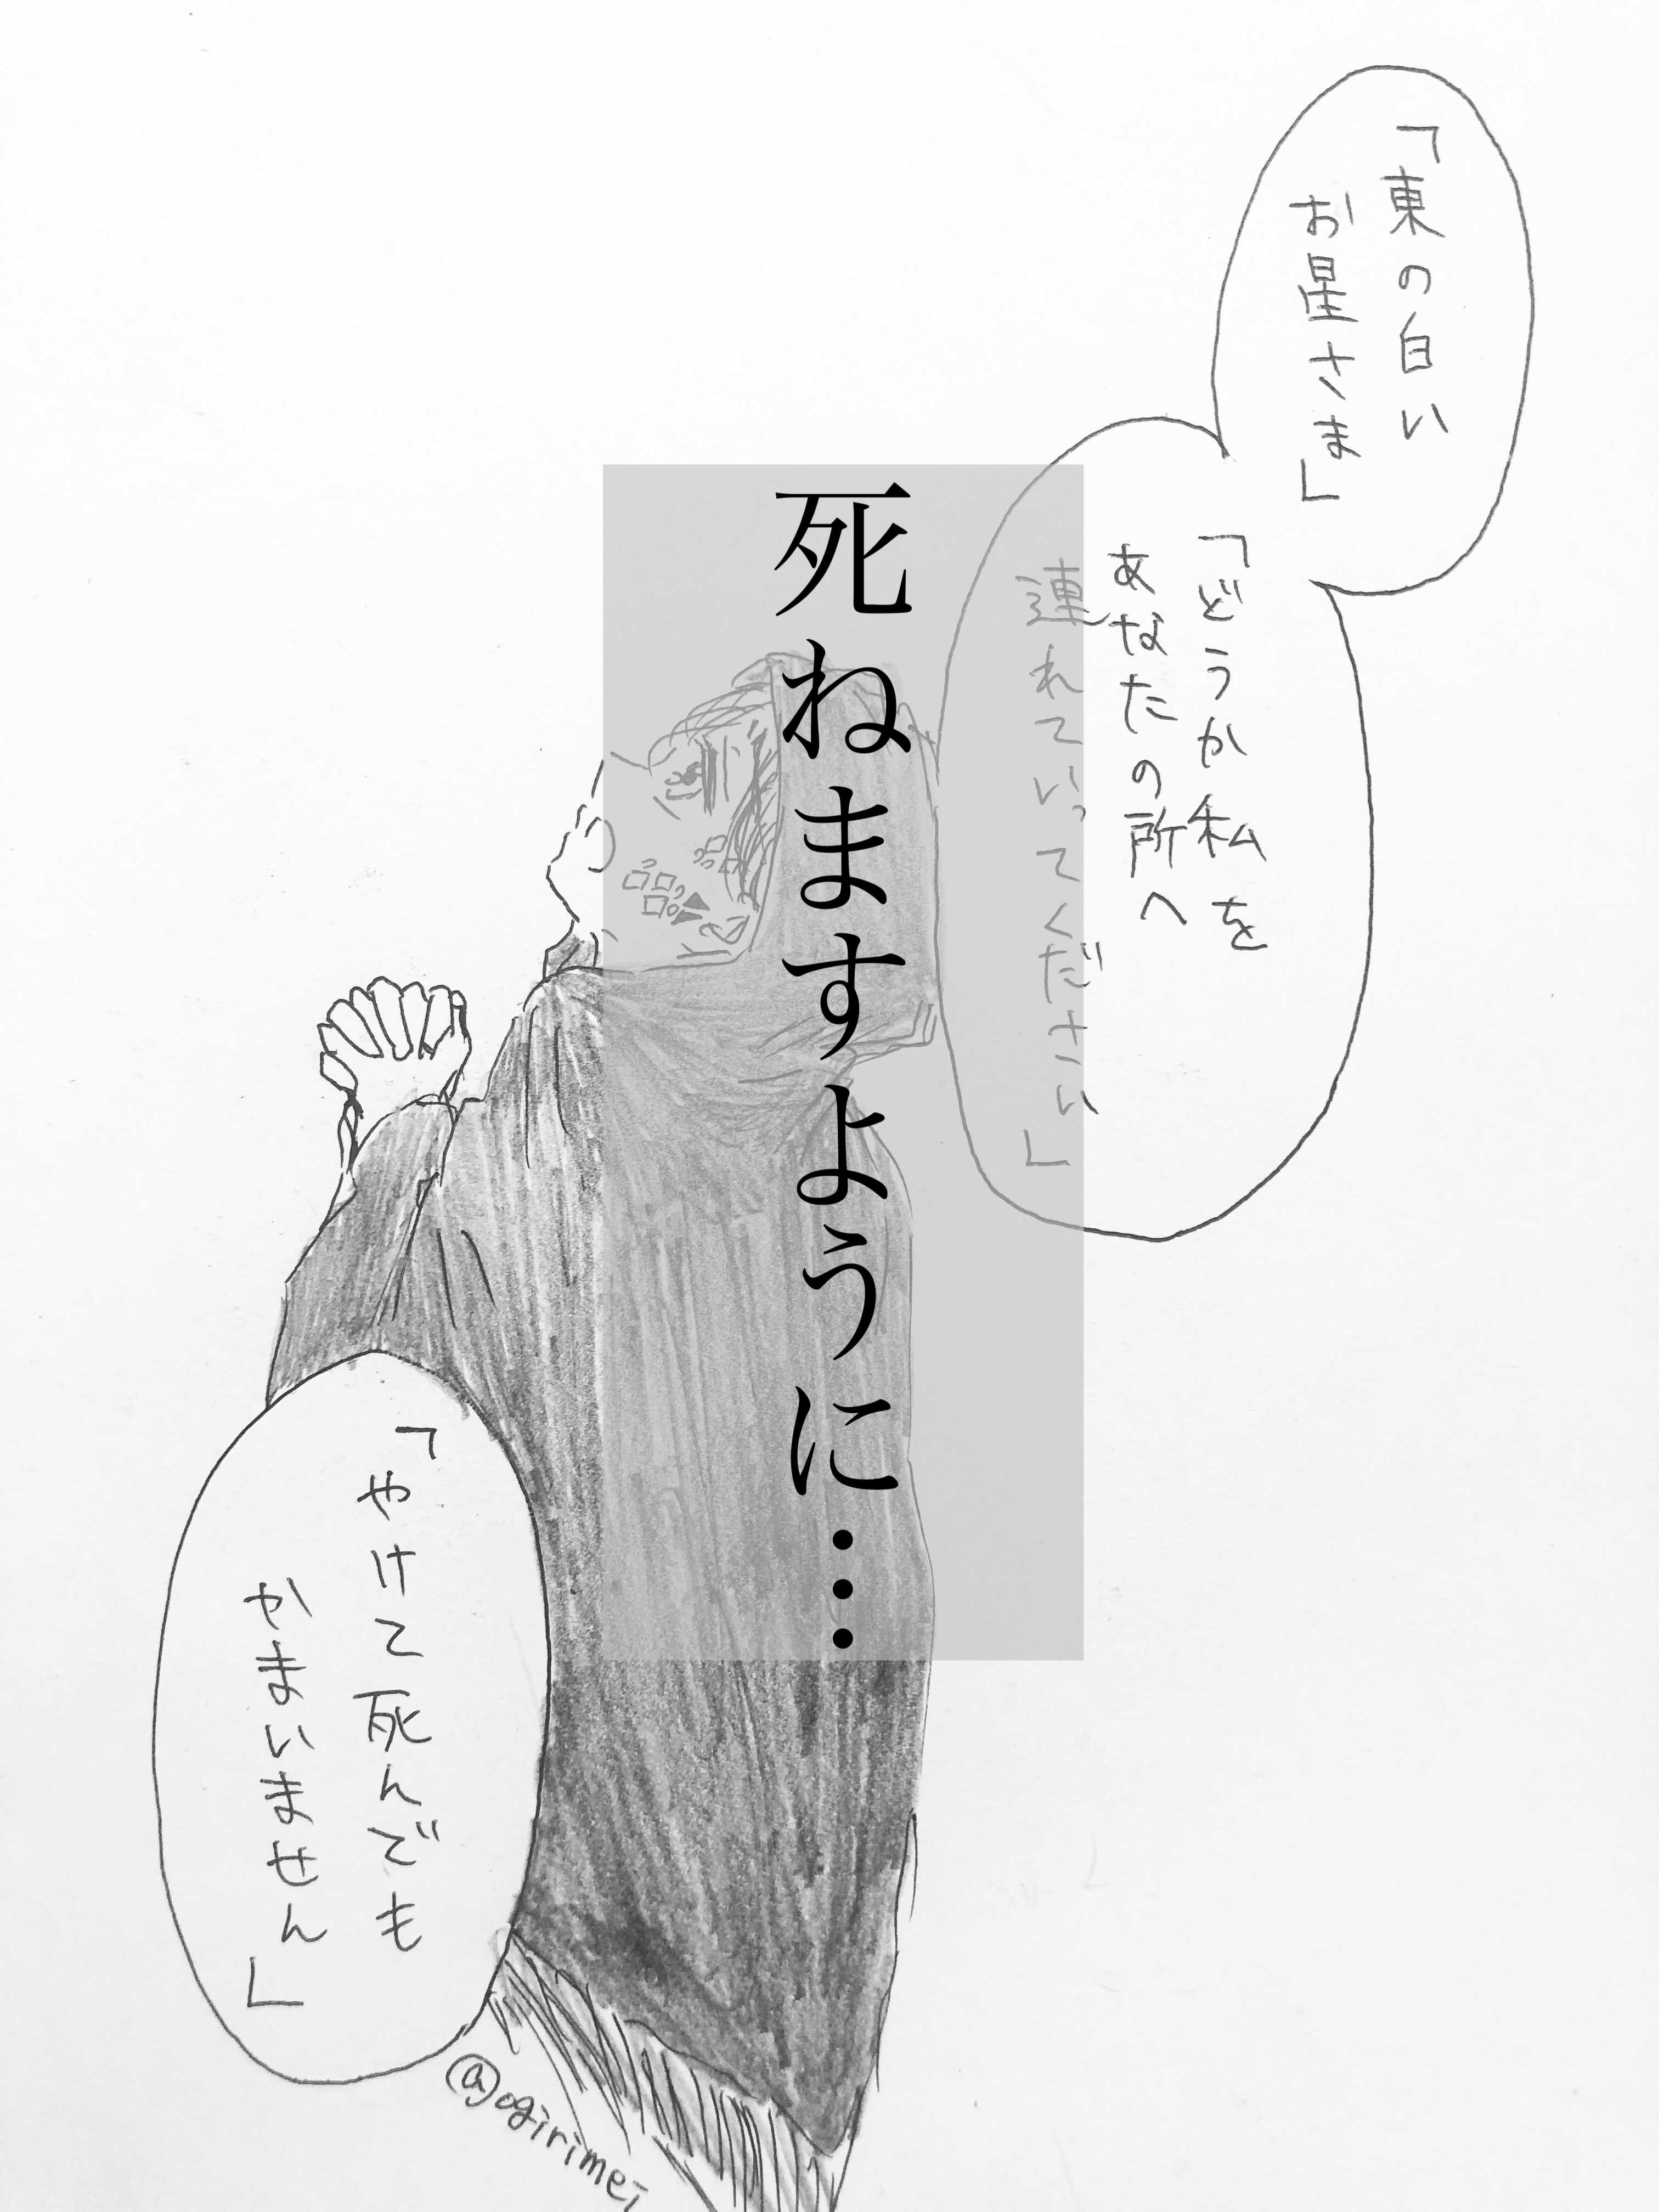 「東の白い
お星さま」
「どうか私を
あなたの所へ
連れていってください」
死ねますように…
「やけて死んでも
かまいません」
@ogirimei